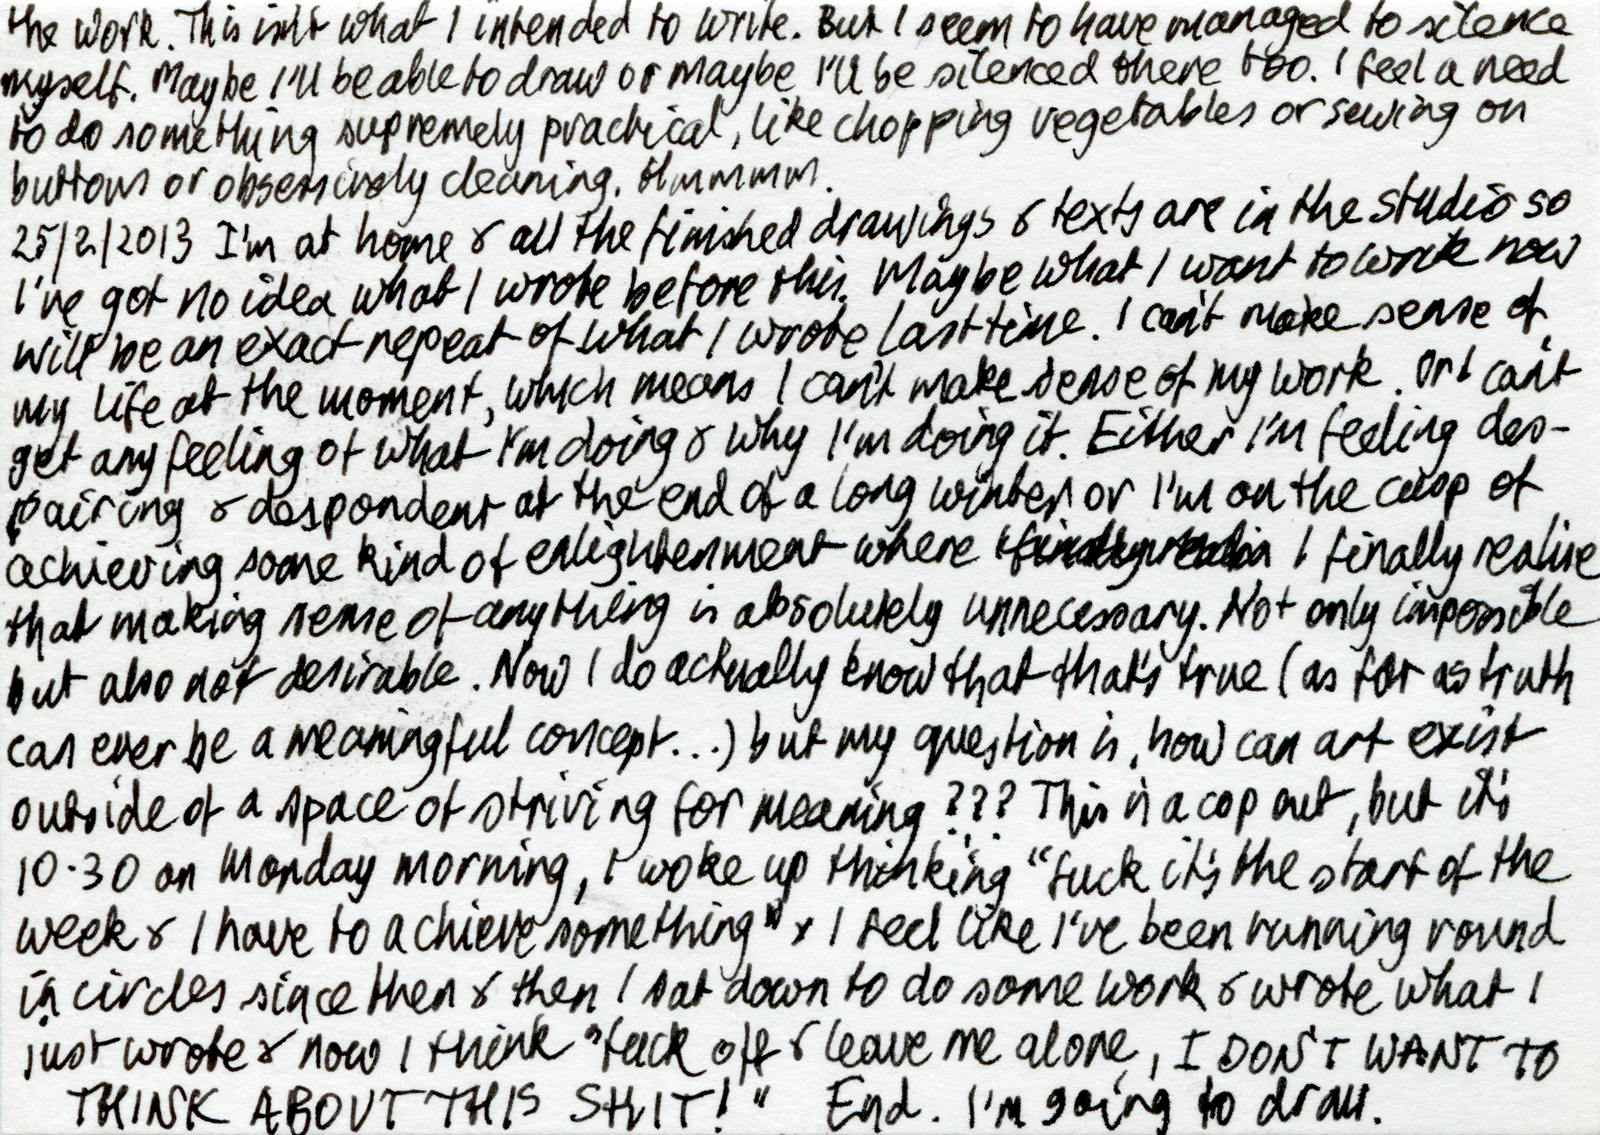 the work. This isn't what I intended to write. But I seem to have managed to silence
myself. Maybe I'll be able to draw or maybe I'll be silenced there too. I feel a need
to do something supremely practical, like chopping vegetables or sewing on
buttons or obsessively cleaning. Hmmmmm.
25/2/2013 I'm at home & all the finished drawings & texts are in the studio so
I've got no idea what I wrote before this. Maybe what I want to write now
will be an exact repeat of what I wrote last time. I can't make sense of
my life at the moment, which means I can't make sense of my work. Or I can't
get any feeling of what I'm doing & why I'm doing it. Either I'm feeling des-
pairing & despondent at the end of a long winter or I'm on the cusp of
achieving some kind of enlightenment where I finally realise
that making sense of anything is absolutely unnecessary. Not only impossible
but also not desirable. Now I do actually know that that's true (as far as truth
can ever be a meaningful concept...) but my question is, how can art exist
outside of a space of striving for meaning??? This is a cop out, but it's
10.30 on Monday morning, I woke up thinking "fuck it's the start of the
week & I have to achieve something" & I feel like I've been running round
in circles since then & then I sat down to do some work & wrote what I
just wrote & now I think "fuck off & leave me alone, I DON'T WANT TO
THINK ABOUT THIS SHIT!" End. I'm going to draw.